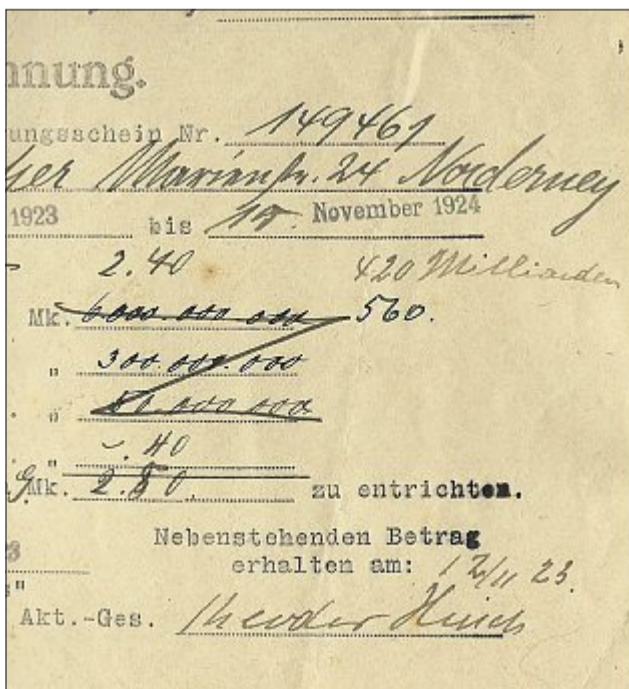 nnung.
ungsschein Nr. 149461
Marienstr. 24 Norderney
1923 bis 15. November 1924
2.40 420 Milliarden
Mk. 6000.000.000 560.
" 300.000.000
" 60.000.000
-.40
Mk. 2.80. zu entrichten.
Nebenstehenden Betrag
erhalten am: 12/11 23.
Akt.-Ges. Theodor